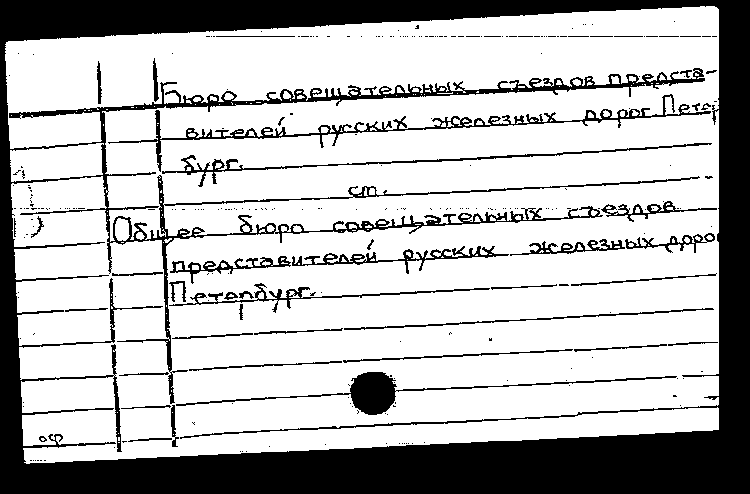 Бюро совещательных съездов предста-
вителей русских железных дорог. Петер
бург.
ст.
Общее бюро совещательных съездов
представителей русских железных дорог
Петербург.
оф